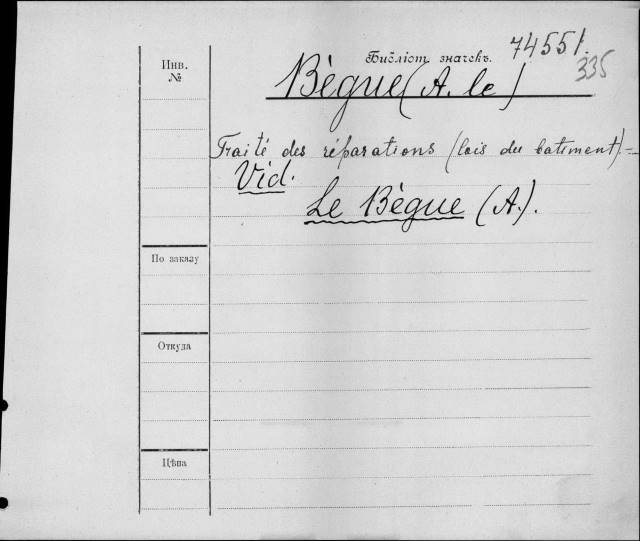 74551.
Инв. №
Библіот. значекъ.
335
Bègue (A. le)
Traité des réparations (lois du batiment).=
Vid.
Le Bègue (A.).
По заказу
Откуда
Цѣна